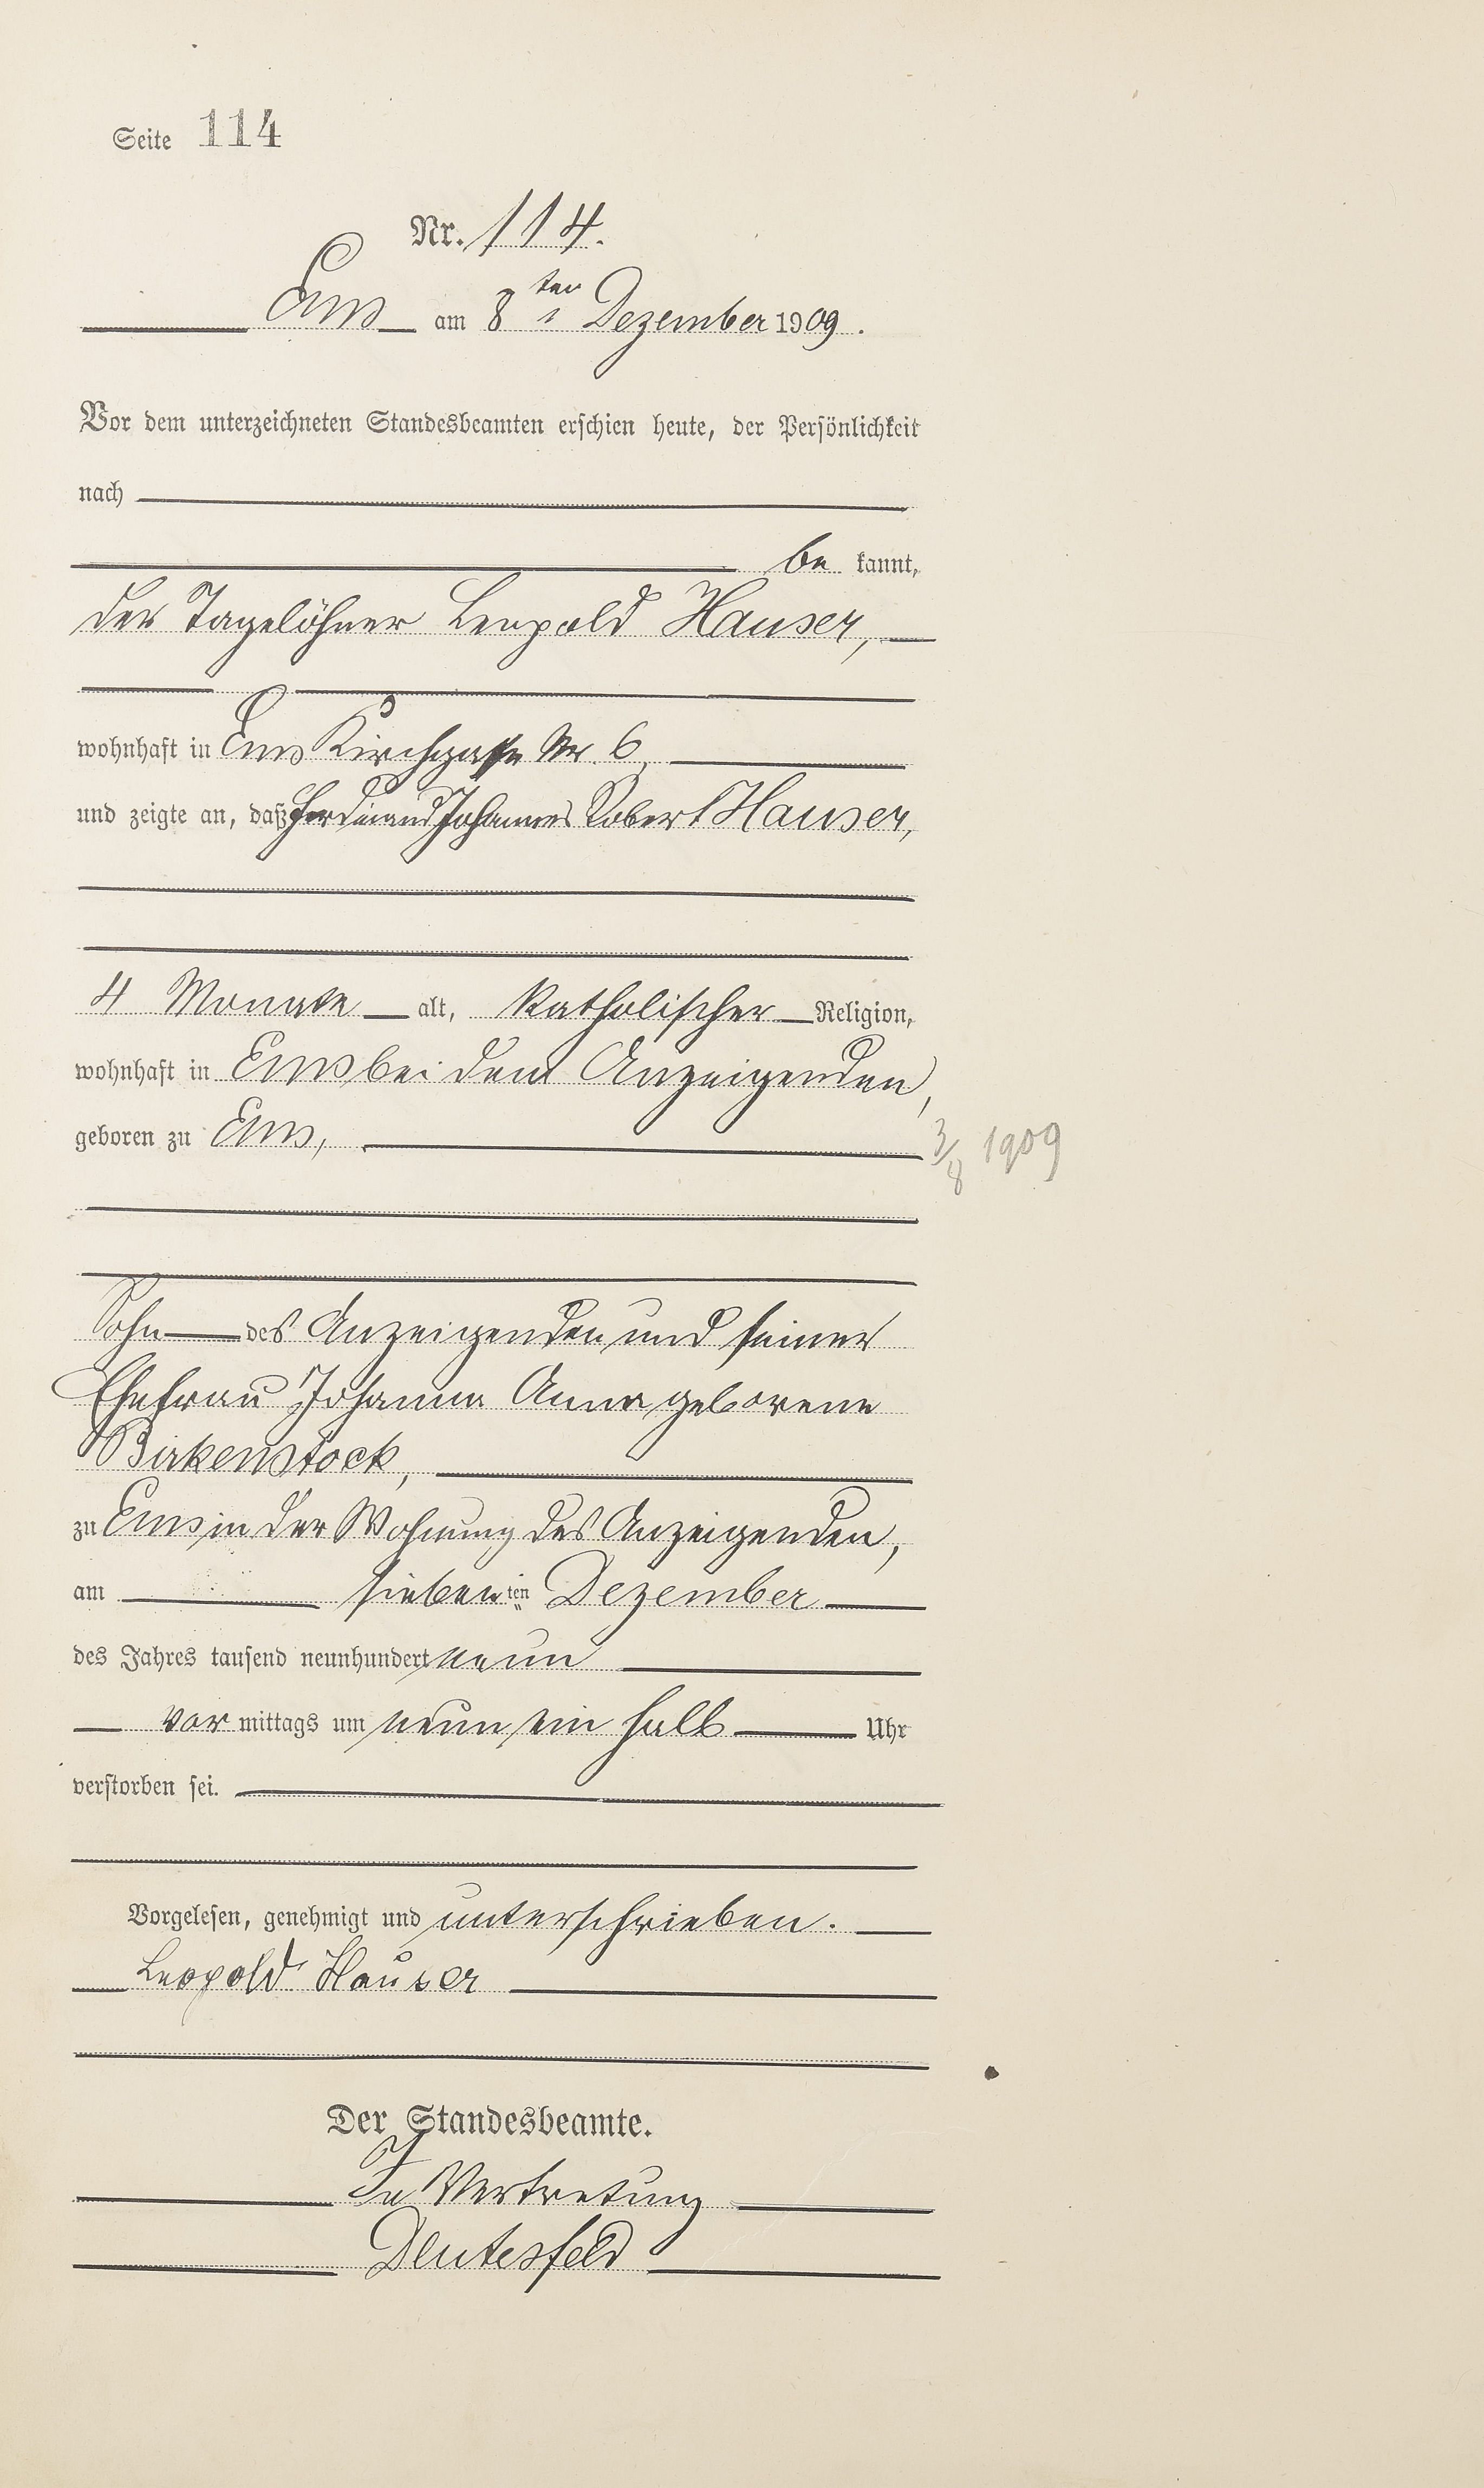 Seite 114
Nr. 114.
Ems am 8ten Dezember 1909.
Vor dem unterzeichneten Standesbeamten erschien heute, der Persönlichkeit
nach
be kannt,
der Tagelöhner Leopold Hauser,
wohnhaft in Ems Kirchgasse Nr. 6
und zeigte an, daß Ferdinand Johannes Robert Hauser,
4 Monate alt, katholischer Religion,
wohnhaft in Ems bei dem Anzeigenden,
geboren zu Ems, 3/8 1909
Sohn des Anzeigenden und seiner
Ehefrau Johanna Anna geborene
Birkenstock,
zu Ems in der Wohnung des Anzeigenden,
am siebenten Dezember
des Jahres tausend neunhundert neun
vor mittags um neun ein halb Uhr
verstorben sei.
Vorgelesen, genehmigt und unterschrieben.
Leopold Hauser
Der Standesbeamte.
In Vertretung
Deutesfeld